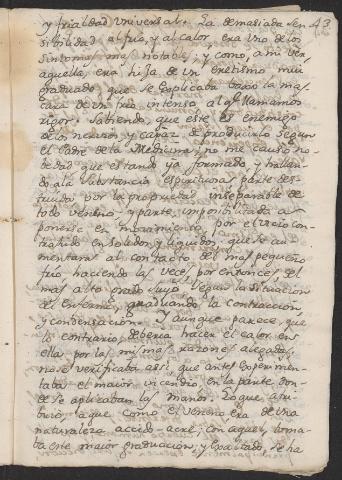 43
y frialdad universal. La demasiada sen
sibilidad al frio, y al calor era uno de los
sintomas mas notables, y como, a mi ver
aquella, era hija de un eretismo mui
graduado, que se explicaba baxo la mas
cara de un frio intenso al ql. llamamos
rigor. Sabiendo, que este es enemigo
de los nervios, y capaz de producirlo segun
el Padre de la Medicina, no me causó no
bedad que estando ya formado, y hallan
do a la substancia espirituosa parte des
truida por la propiedad inseparable de
todo veneno, y parte imposibilitada a
ponerse en movimiento por el vicio con
trahido en solidos y liquidos, que se au
mentara al contacto del mas pequeño
frio haciendo las veces por entonces del
mas alto grado suyo segun la situacion
del enfermo, graduando la contraccion,
y condensacion. Y aunque parece, que
lo contrario, deberia hacer el calor en
ella, por las mismas razones alegadas,
no se verificaba assi que antes experimen
taba el maior incendio en la parte don
de se aplicaban las manos. Lo que atri
buyo, a que como el veneno era de una
naturaleza accido-acre: con aquel toma
ba este maior graduacion, y exaltado, se ha